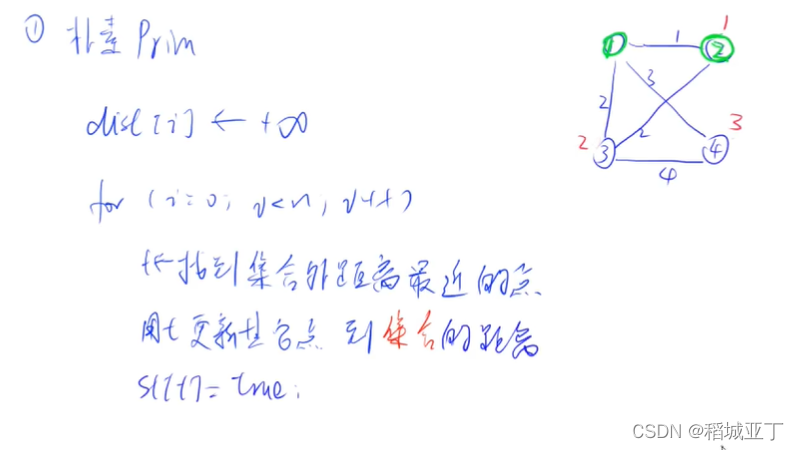 ① 朴素Prim
dist[i] ← +∞
for (i=0; i<n; i++)
t←找到集合外距离最近的点
用t更新其它点 到集合的距离
st[t]=true;
1
① 1 ②
2 3
2 3 2 3
③ ④
4
CSDN @稻城亚丁